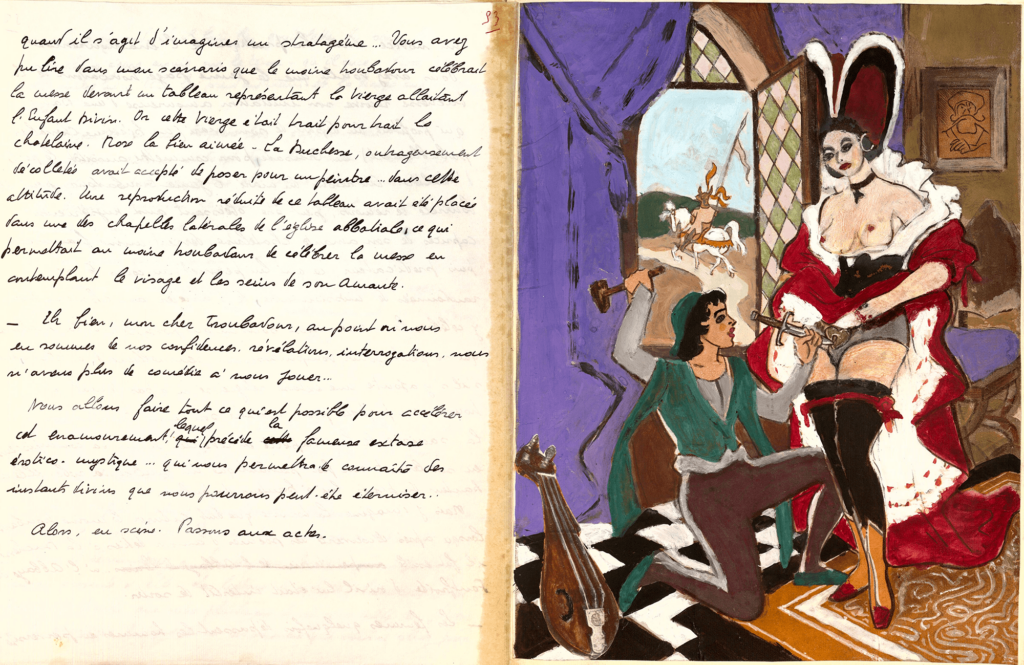 93
quand il s'agit d'imaginer un stratagème... Vous avez
pu lire dans mon scénario que le moine troubadour célébrait
la messe devant un tableau représentant la Vierge allaitant
l'Enfant Divin. Or cette Vierge était trait pour trait la
chatelaine. Rose la bien aimée - La Duchesse, outrageusement
décolletée avait accepté de poser pour un peintre... dans cette
attitude. Une reproduction réduite de ce tableau avait été placée
dans une des chapelles latérales de l'église abbatiale, ce qui
permettait au moine troubadour de célébrer la messe en
contemplant le visage et les seins de son Amante.
— Eh bien, mon cher Troubadour, au point où nous
en sommes de nos confidences, révélations, interrogations, nous
n'avons plus de comédie à nous jouer...
Nous allons faire tout ce qui est possible pour accélérer
cet enamourement, lequel précède la fameuse extase
érotico-mystique... qui nous permettra de connaître des
instants divins que nous pourrons peut-être éterniser..
Alors, en scène. Passons aux actes.